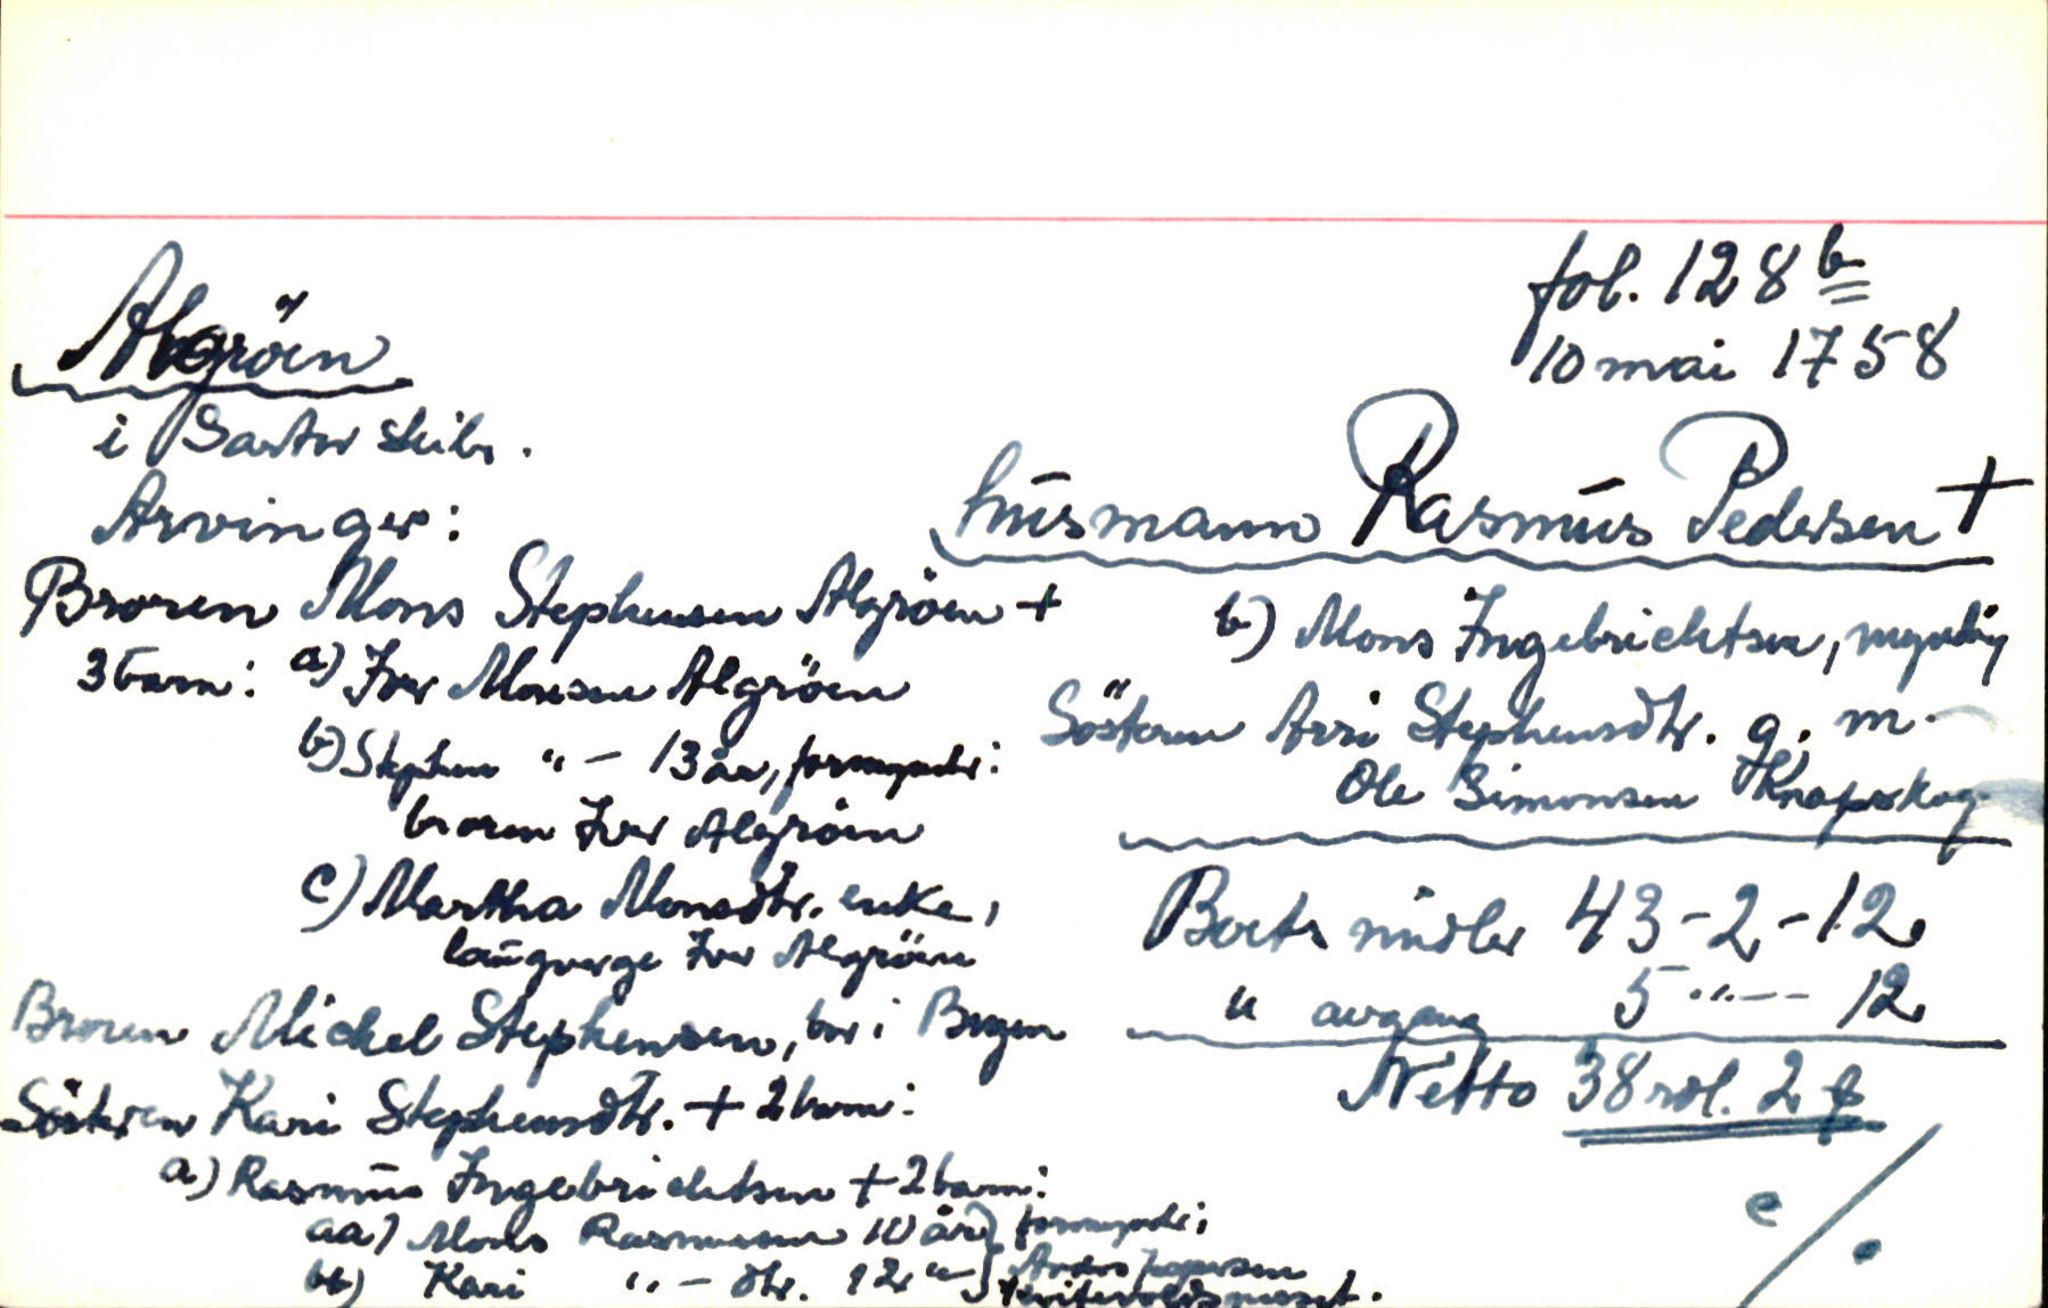 fol. 128 b
10 mai 1758
Algröen
i Sartor skibr.
husmann Rasmus Pedersen +
Arvinger:
Broren Mons Stephensen Algröen +
3 barn: a) Iver Monsen Algröen
b) Stephen " - 13 år, formynder:
broren Iver Algröen
c) Martha Monsdtr. enke,
laugverge Iver Algröen
Broren Mickel Stephensen, bor i Bergen
Søsteren Kari Stephensdtr. + 2 barn:
a) Rasmus Ingebrichtsen + 2 barn:
aa) Mons Rasmussen 10 år } formynder:
bb) Kari " - dtr. 12 " } Anders
b) Mons Ingebrichtsen, myndig
Søsteren Arri Stephensdtr. g. m.
Ole Simonsen Knapskog
Boets midler 43-2-12
" avgang 5 " -- 12
Netto 38 rdl. 2